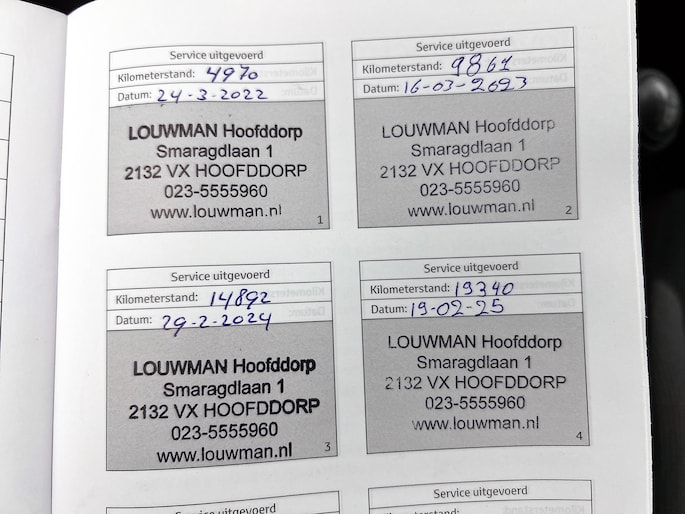 Service uitgevoerd
Kilometerstand: 4970
Datum: 24-3-2022
LOUWMAN Hoofddorp
Smaragdlaan 1
2132 VX HOOFDDORP
023-5555960
www.louwman.nl
1
Service uitgevoerd
Kilometerstand: 9861
Datum: 16-03-2023
LOUWMAN Hoofddorp
Smaragdlaan 1
2132 VX HOOFDDORP
023-5555960
www.louwman.nl
2
Service uitgevoerd
Kilometerstand: 14892
Datum: 29-2-2024
LOUWMAN Hoofddorp
Smaragdlaan 1
2132 VX HOOFDDORP
023-5555960
www.louwman.nl
3
Service uitgevoerd
Kilometerstand: 19340
Datum: 19-02-25
LOUWMAN Hoofddorp
Smaragdlaan 1
2132 VX HOOFDDORP
023-5555960
www.louwman.nl
4
Service uitgevoerd
Service uitgevoerd
Kilometerstand: